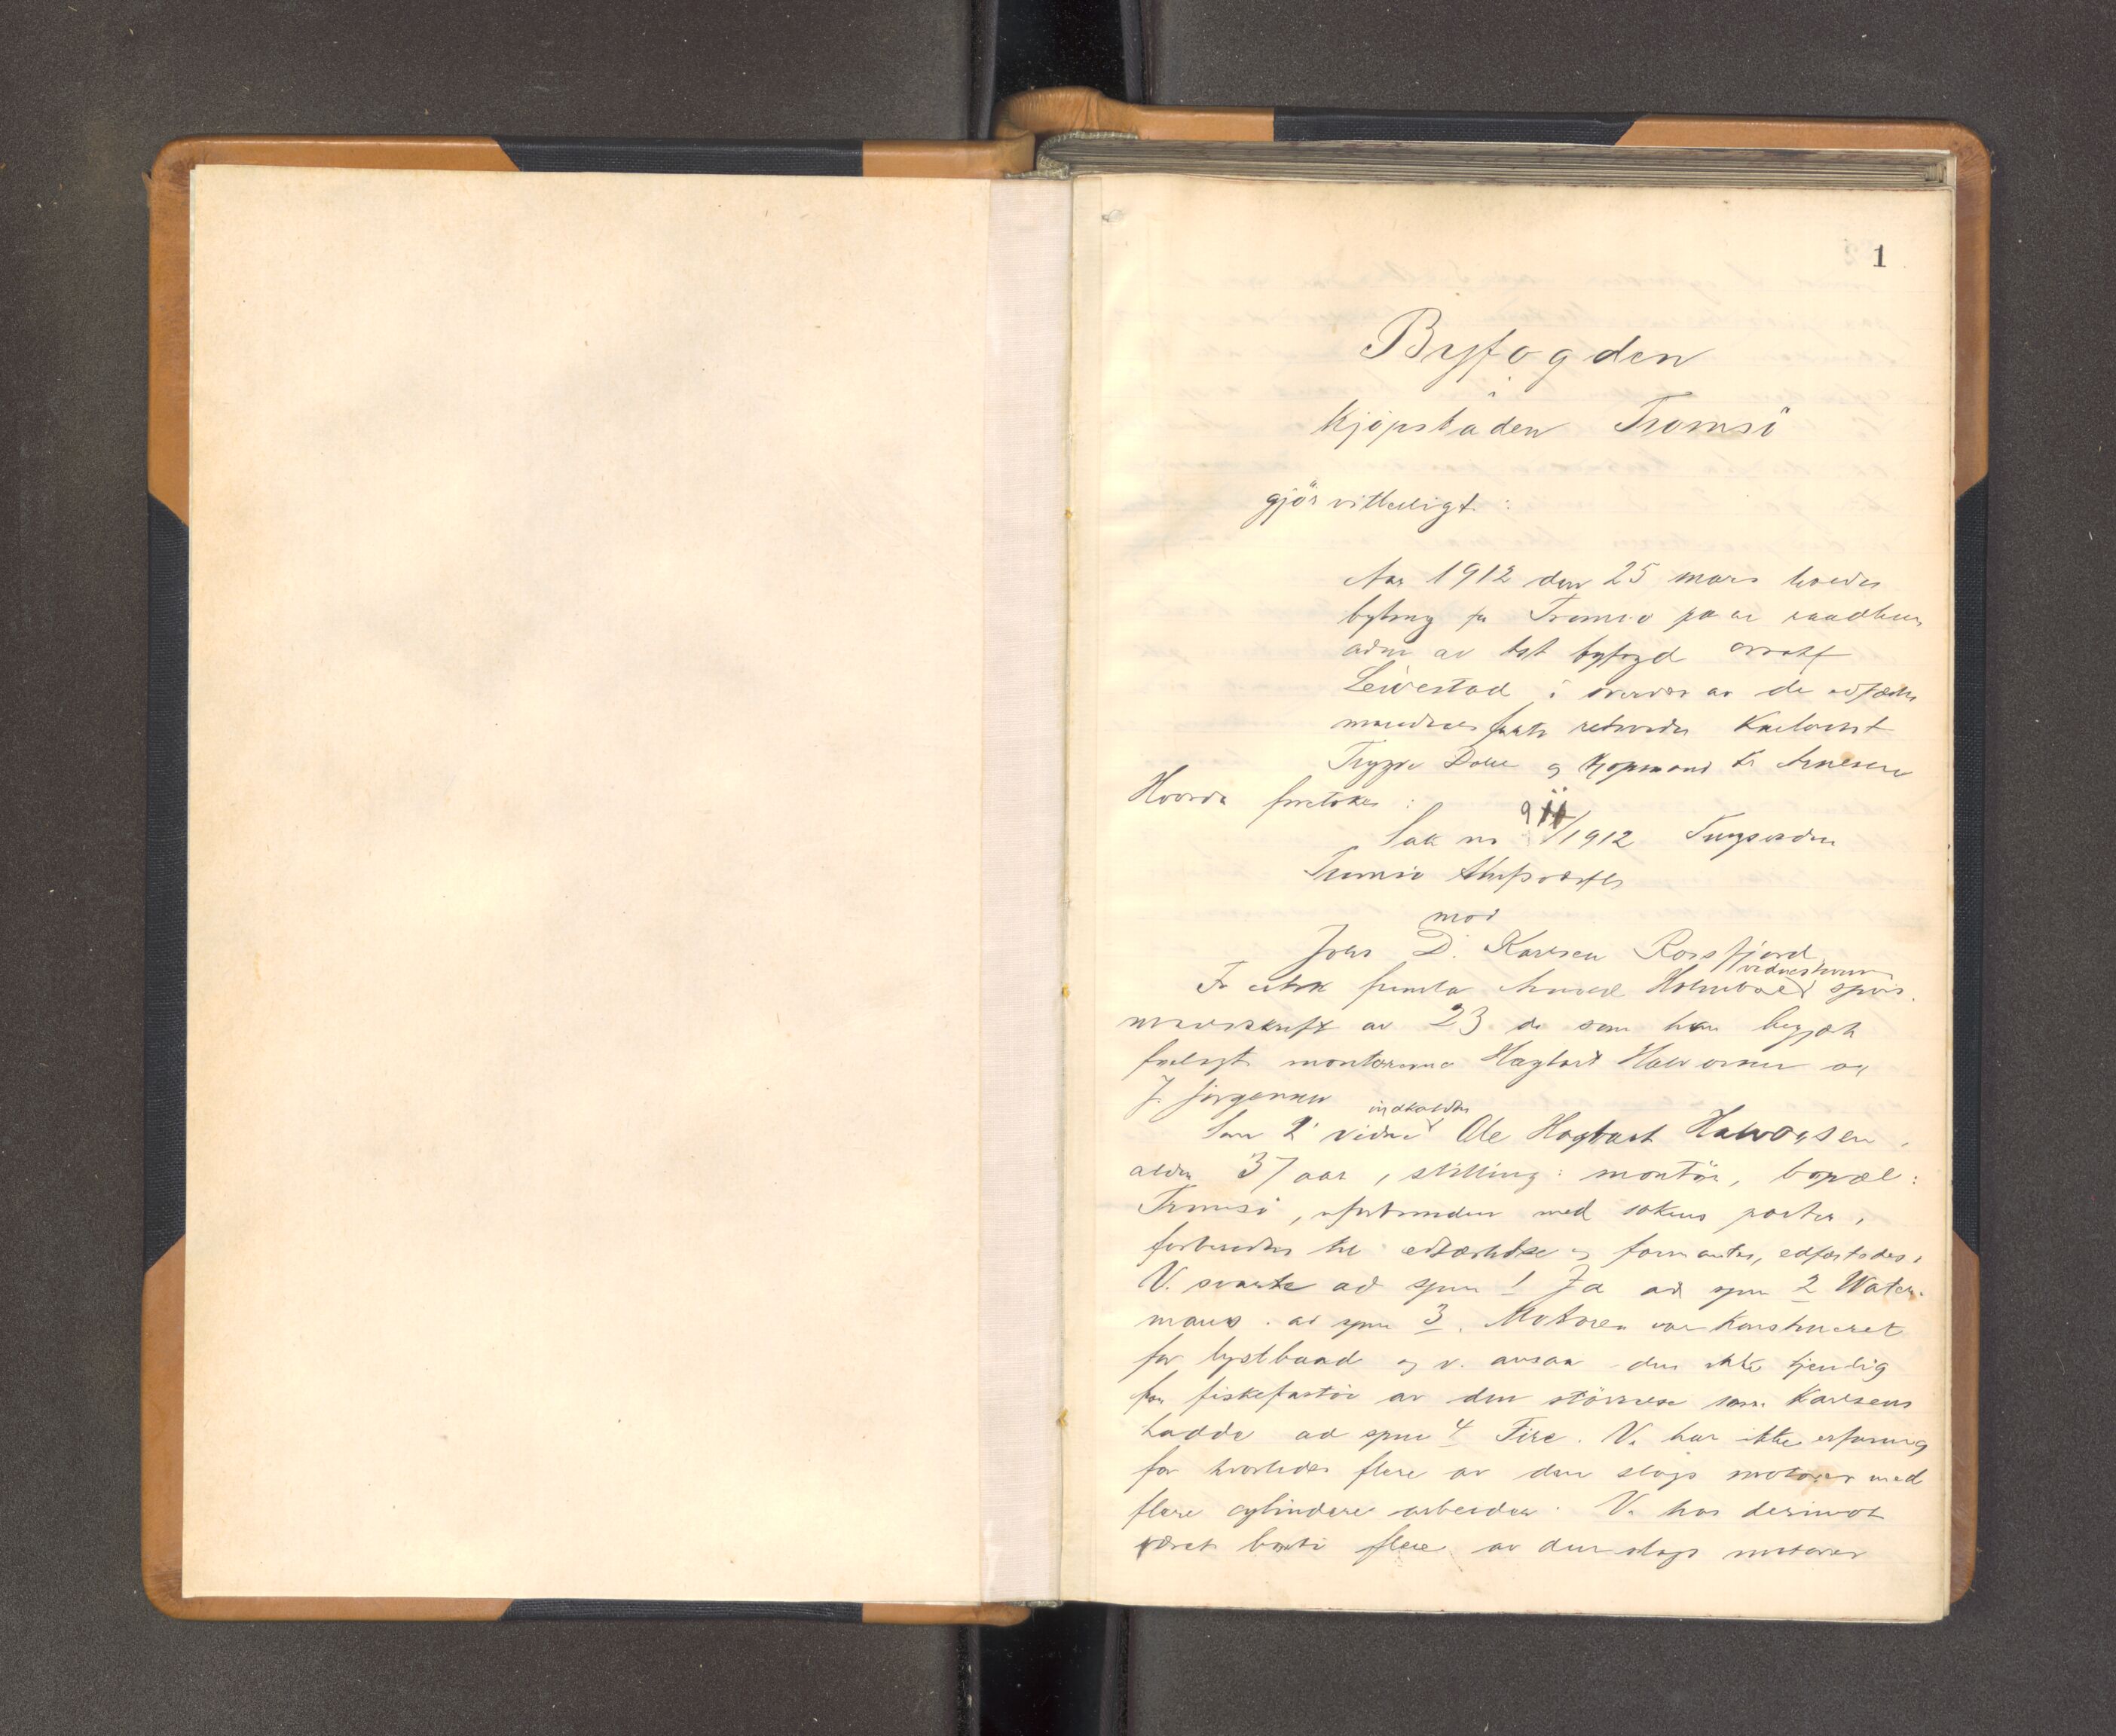 1
Byfogden
i
Kjøpstaden Tromsö
gjör vitterligt :
Aar 1912 den 25 mars
byting Tromsö paa raadhuse
adm av byfogd
Leivestad i overvær av de
mænd
Trygve og kjøpmand Arnesen
Hvorda foretokes :
Sak nr /1912
Tromsö
mod
Johs D. Karlsen Rossfjord
vidnes
fremla Holmboes spørs
maalsskrift av 23 ds som han begjærte
forelagt montørerne Hagbart Halvorsen og
J. Jørgensen
indkaldtes
Som 2 vidne Ole Hagbart Halvorsen,
alder 37 aar, stilling: montör, bopæl:
Tromsö, uforbunden med sakens parter,
forberedtes til edfæstelse og formantes, edfæstedes.
V. svarte ad spm 1 Ja ad spm 2 Water-
mans. ad spm 3. Motoren var konstrueret
for lystbaad og v. ansaa den ikke tjenlig
for fiskefartöi av den störrelse som Karlsens
hadde ad spm 4 Fire. V. har ikke erfaring
for hvorledes flere av den slags motorer med
flere cylindere arbeider. V. har derimot
været borti flere av den slags motorer